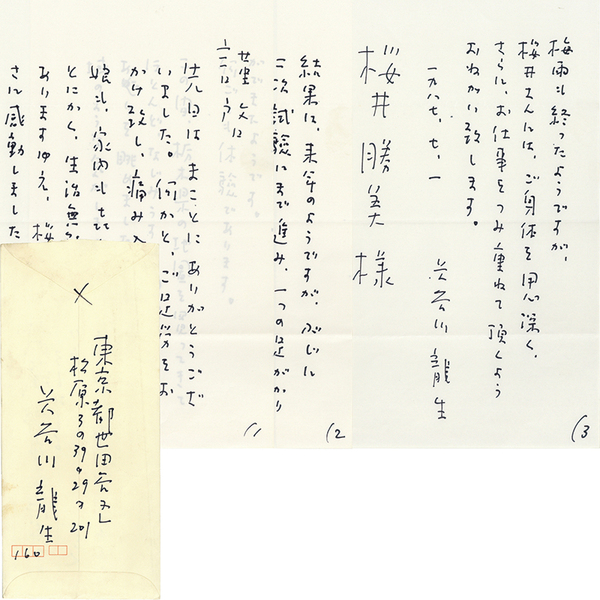 梅雨も終ったようですが、
桜井さんには、ご身体を用心深く、
さらに、お仕事をつみ重ねて頂くよう
おねがい致します。
一九八七、七、一
長谷川龍生
桜井勝美様
(3
結果は、来年のようですが、ぶじに
二次試験にまで進み、一つの足がかり
(2
日はまことにありがとうござ
いました。何かと、ご足労をお
かけ致し、痛み入
娘も、家内も
とにかく、生活無
ありますゆえ、桜
さに感動しました
(1
東京都世田谷区
松原3の39の29の201
長谷川龍生
160